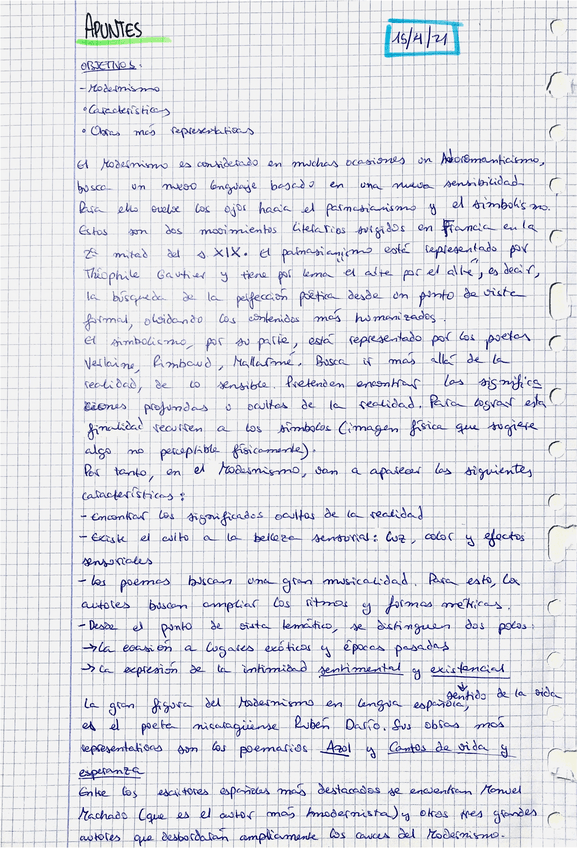 APUNTES
15/4/21
OBJETIVOS:
- Modernismo
• Características
• Obras más representativas
El Modernismo es considerado en muchas ocasiones un Neoromanticismo,
busca un nuevo lenguaje basado en una nueva sensibilidad.
Para ello vuelve los ojos hacia el parnasianismo y el simbolismo.
Estos son dos movimientos literarios surgidos en Francia en la
2ª mitad del s XIX. El parnasianismo está representado por
Théophile Gautier y tiene por lema "el arte por el arte", es decir,
la búsqueda de la perfección poética desde un punto de vista
formal, olvidando los contenidos más humanizados.
El simbolismo, por su parte, está representado por los poetas
Verlaine, Rimbaud, Mallarmé. Busca ir más allá de la
realidad, de lo sensible. Pretenden encontrar las significa
ciones profundas u ocultas de la realidad. Para lograr esta
finalidad recurren a los símbolos (imagen física que sugiere
algo no perceptible físicamente).
Por tanto, en el Modernismo, van a aparecer las siguientes
características:
- Encontrar los significados ocultos de la realidad
- Existe el culto a la belleza sensorial: luz, color y efectos
sensoriales
- Los poemas buscan una gran musicalidad. Para esto, los
autores buscan ampliar los ritmos y formas métricas.
- Desde el punto de vista temático, se distinguen dos polos:
→ La evasión a lugares exóticos y épocas pasadas
→ La expresión de la intimidad sentimental y existencial
↓
sentido de la vida
La gran figura del Modernismo en lengua española,
es el poeta nicaragüense Rubén Darío. Sus obras más
representativas son los poemarios Azul y Cantos de vida y
esperanza
Entre los escritores españoles más destacados se encuentran Manuel
Machado (que es el autor más modernista) y otros tres grandes
autores que desbordarán ampliamente los cauces del Modernismo.